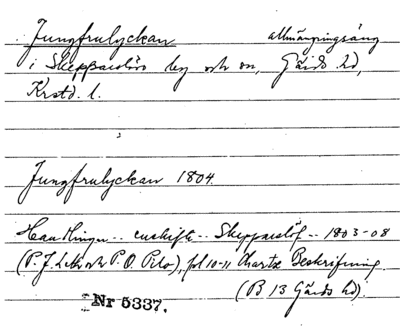 Jungfrulyckan allmänningsäng
i Skepparslövs by och sn, Gärds hd,
Krstd. l.
Jungfrulyckan 1804.
Handlingar - enskifte - Skepparslöf - 1803-08
(P. J. Leth och P. O. Pilo), fol 10-11 Charta Beskrifning
(B 13 Gärds hd).
Nr 5337.